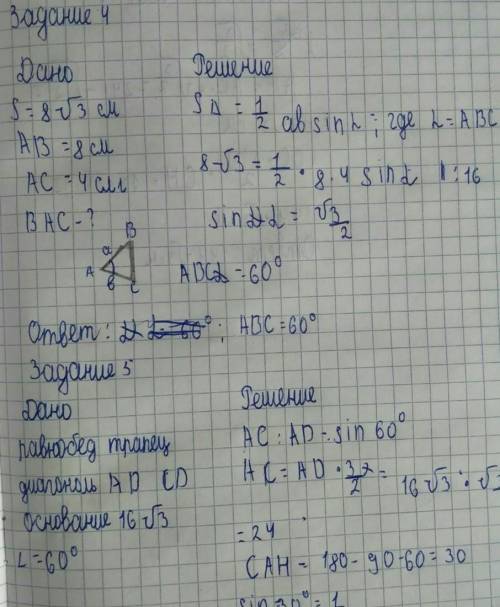 Задание 4
Дано
S = 8√3 см
AB = 8 см
AC = 4 см
BAC - ?
B
a
A
в
C
Решение
S∆ = 1/2 ab sin L ; где L = ABC
8√3 = 1/2 · 8 · 4 sin L | : 16
sin L = √3/2
= 60°
Ответ: ; ABC = 60°
Задание 5
Дано
равнобед трапец
диагональ AD CD
Основание 16√3
L = 60°
Решение
AC : AD = sin 60°
AC = AD · /2 = 16√3 ·
= 24
CAH = 180 - 90 - 60 = 30
sin 30° = 1